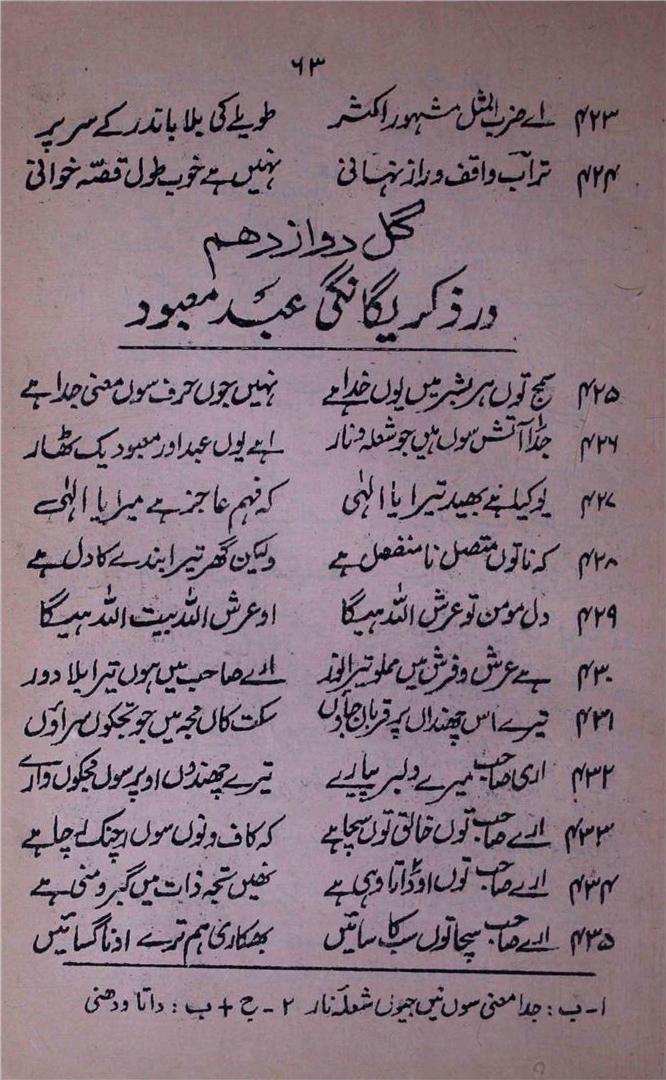 ۶۳
۴۲۳ اے ضرب المثل مشہور اکثر طویلے کی بلا باندر کے سر پر
۴۲۴ تراب واقف و راز نہانی نہیں ہے خوب طول قصّہ خوانی
گل دوازدھم
در ذکر یگانگی عبد معبود
۴۲۵ سمج توں ہر بشر میں یوں خدا ہے نہیں جوں حرف سوں معنی جدا ہے
۴۲۶ جدا آتش سوں ہیں جو شعلہ و نار اہے یوں عبد اور معبود یک ٹھار
۴۲۷ یو کیا ہے بھید تیرا یا الٰہی کہ فہم عاجز ہے میرا یا الٰہی
۴۲۸ کہ نا توں متصل نا منفصل ہے ولیکن گھر تیرا بندے کا دل ہے
۴۲۹ دل مومن تو عرش اللہ ہیگا او عرش اللہ بیت اللہ ہیگا
۴۳۰ ہے عرش و فرش میں مملو تیرا نور ارے صاحب میں ہوں تیرا بلا دور
۴۳۱ تیرے اس چھنداں پہ قربان جاؤں سکت کاں مجہ میں جو تجکوں سراؤں
۴۳۲ اری صاحب میرے دلبر پیارے تیرے چھندوں اوپر سوں مجکوں وارے
۴۳۳ ارے صاحب توں خالق توں سچا ہے کہ کاف و نوں سوں رچنا
۴۳۴ ارے صاحب توں او داتا وہی ہے نھیں تجہ ذات میں کبر و منی ہے
۴۳۵ ارے صاحب سچا توں سب کا سائیں بھکاری ہم ترے ادنا گسائیں
۱-ب: جدا معنی سوں نیں جیوں شعلہ نار ۲-ح + ب: داتا و دھنی